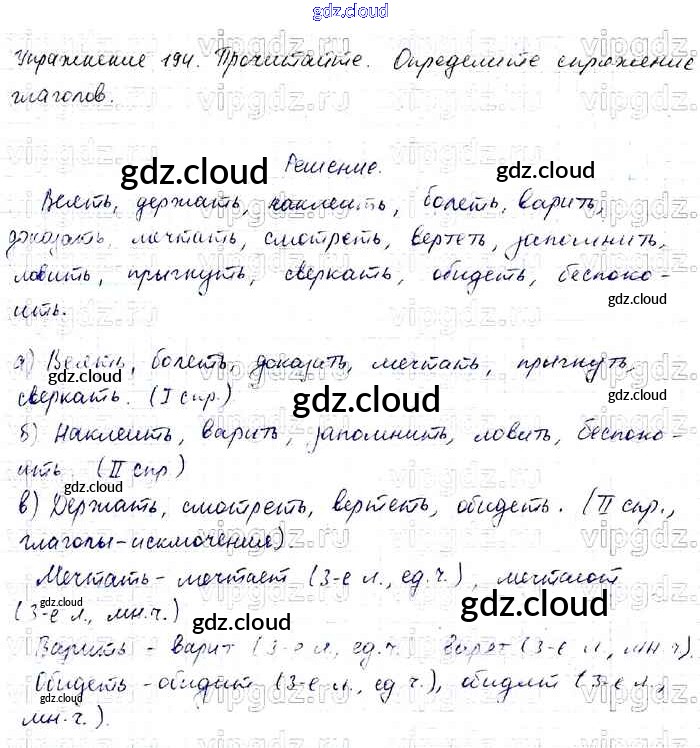 gdz.cloud
Упражнение 194. Прочитайте. Определите спряжение
глаголов.
Решение.
Веять, держать, наклеить, болеть, варить,
доказать, мечтать, смотреть, вертеть, запомнить,
ловить, прыгнуть, сверкать, обидеть, беспоко-
ить.
а) Веять, болеть, доказать, мечтать, прыгнуть,
сверкать. (I спр.)
б) Наклеить, варить, запомнить, ловить, беспоко-
ить. (II спр)
в) Держать, смотреть, вертеть, обидеть. (II спр.,
глаголы-исключения).
Мечтать - мечтает (3-е л., ед.ч.), мечтают
(3-е л., мн.ч.)
Варить - варит (3-е л., ед.ч. варят (3-е л., мн.ч).
Обидеть - обидит (3-е л., ед ч.), обидят (3-е л.,
мн.ч.).